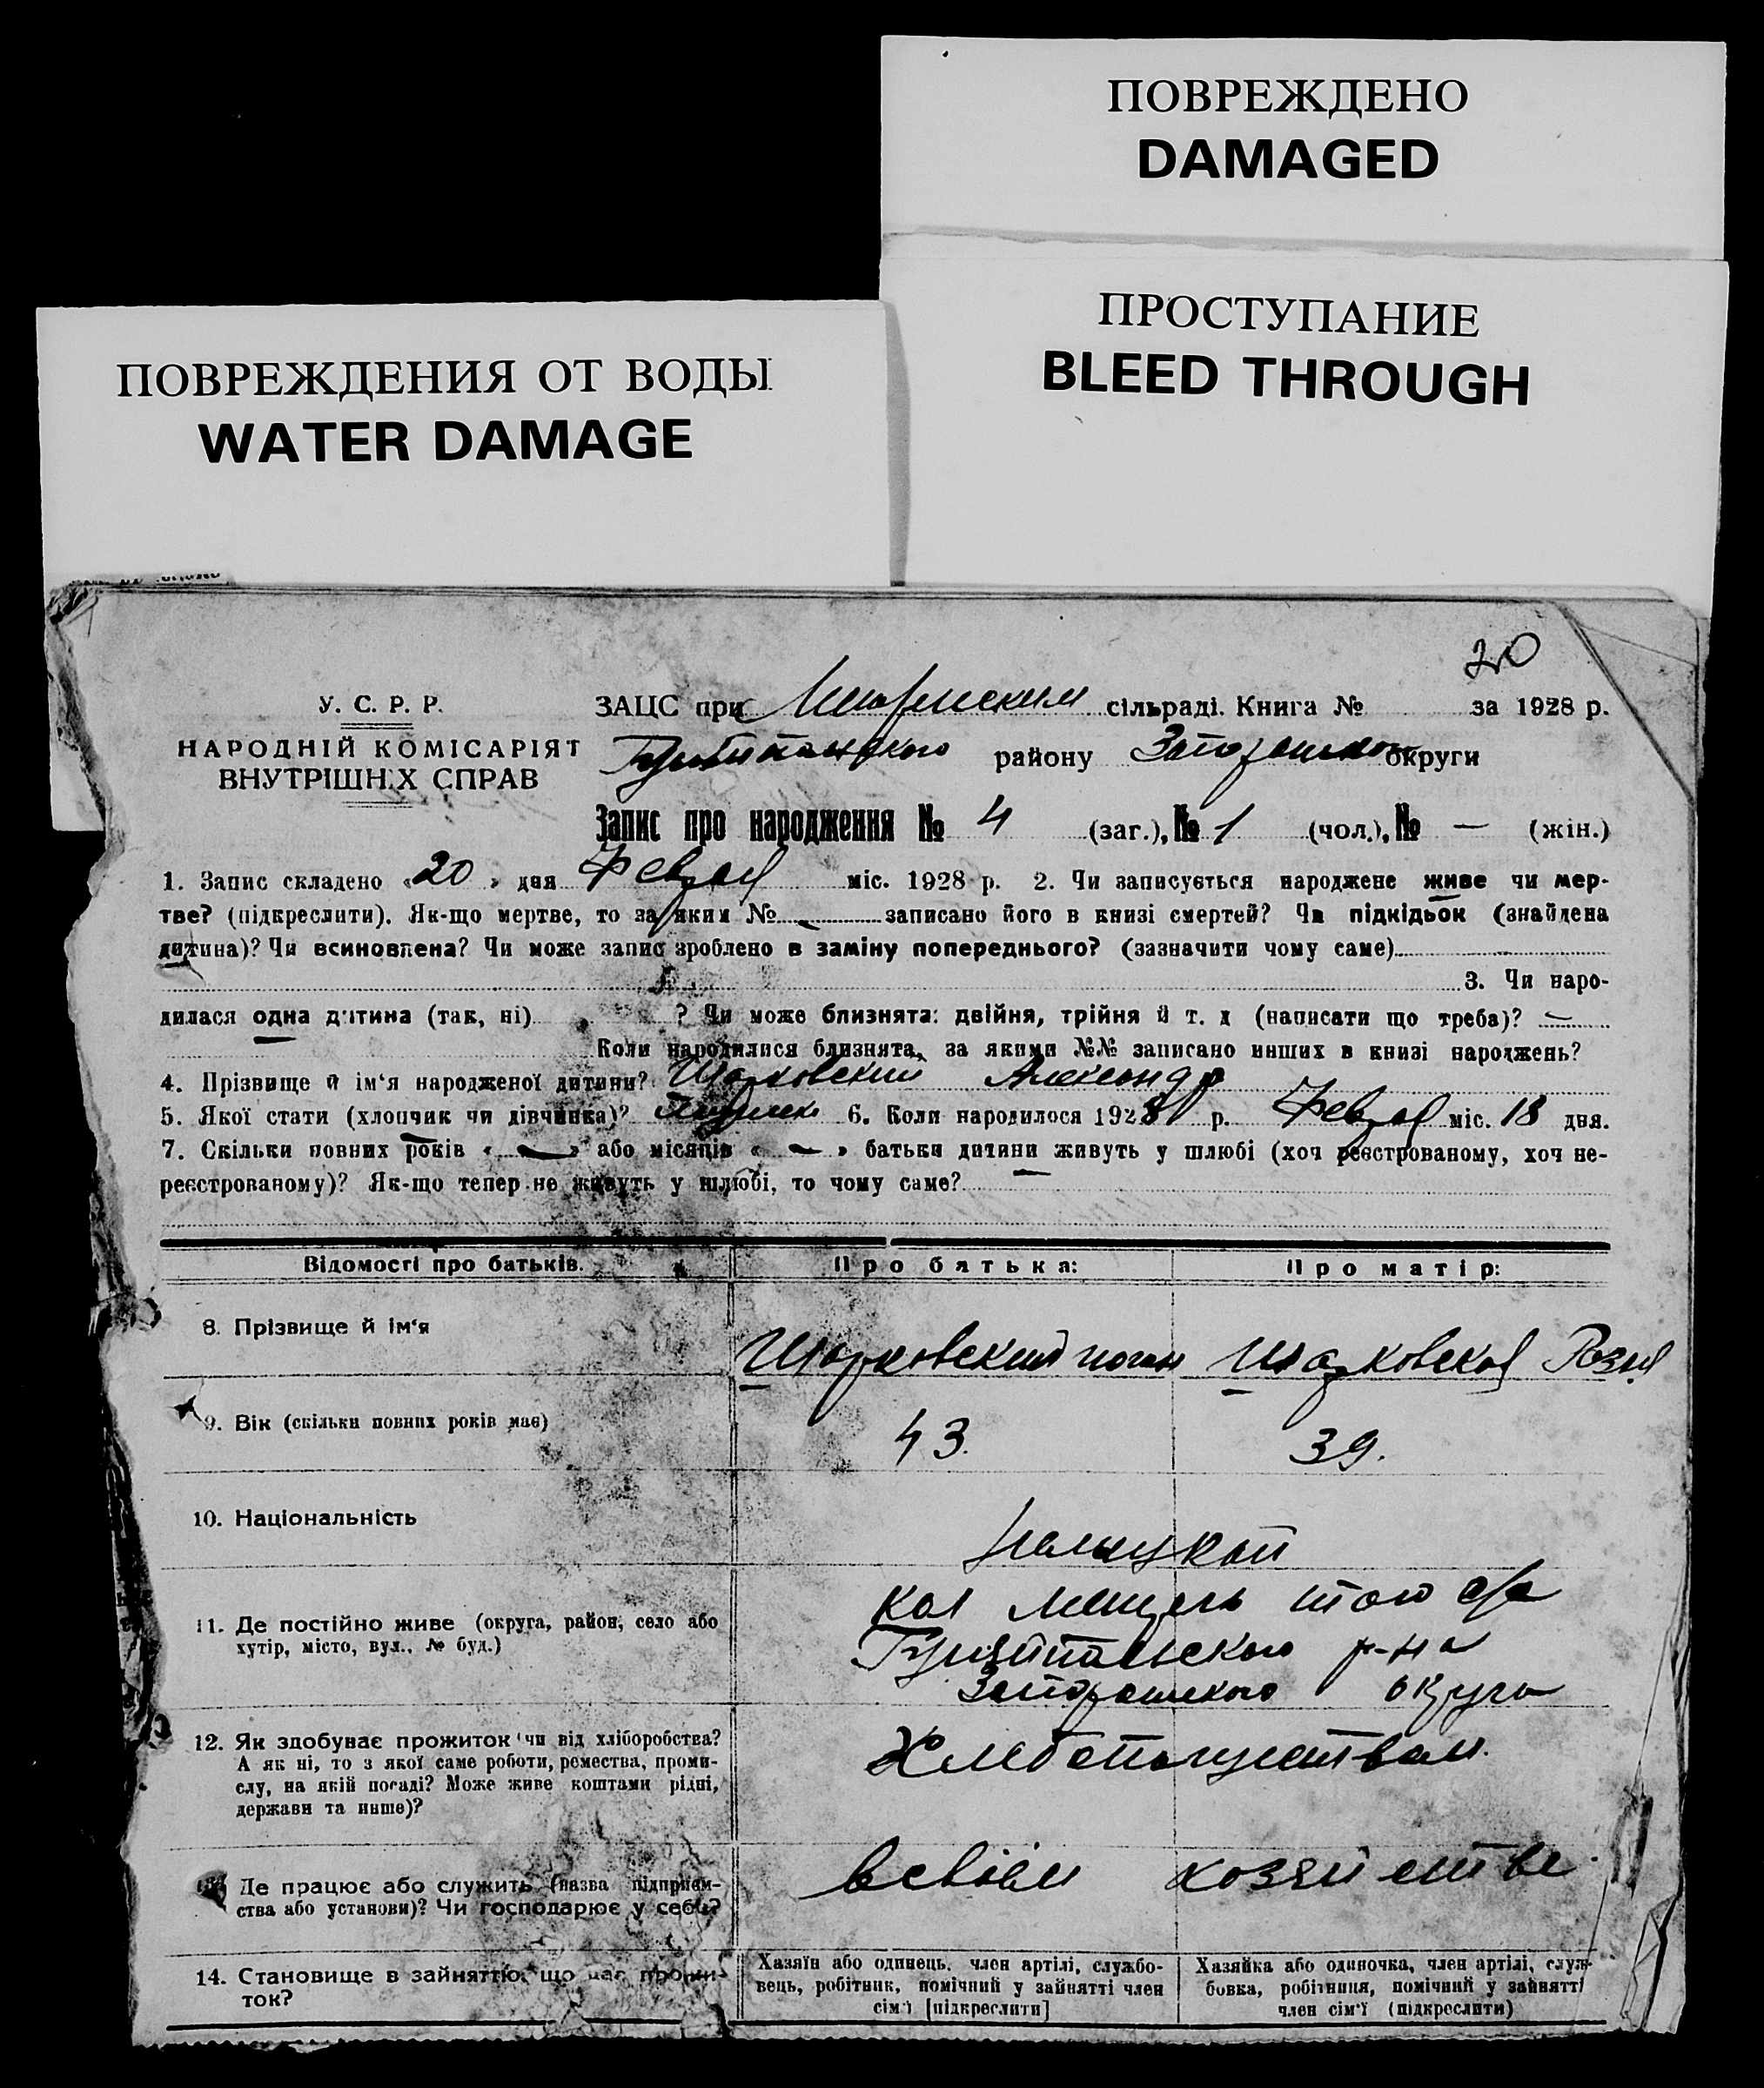 ПОВРЕЖДЕНО
DAMAGED
ПРОСТУПАНИЕ
BLEED THROUGH
ПОВРЕЖДЕНИЯ ОТ ВОДЫ
WATER DAMAGE
20
У. С. Р. Р.
НАРОДНІЙ КОМІСАРІЯТ
ВНУТРІШНІХ СПРАВ
ЗАЦС при сільраді. Книга № за 1928 р.
району округи
Запис про народження № 4 (заг.), № 1 (чол.), № — (жін.)
1. Запис складено «20» дня міс. 1928 р. 2. Чи записується народжене живе чи мер-
тве? (підкреслити). Як-що мертве, то за яким № записано його в книзі смертей? Чи підкідьок (знайдена
дитина)? Чи всиновлена? Чи може запис зроблено в заміну попереднього? (зазначити чому саме)
3. Чи наро-
дилася одна дитина (так, ні) ? Чи може близнята: двійня, трійня й т. д (написати що треба)? —
Коли народилися близнята, за якими №№ записано инших в книзі народжень?
4. Прізвище й ім‘я народженої дитини? Шарковский Александр
5. Якої стати (хлопчик чи дівчинка)? 6. Коли народилося 1928 р. міс. 18 дня.
7. Скільки повних років « — » або місяців « — » батьки дитини живуть у шлюбі (хоч реєстрованому, хоч не-
реєстрованому)? Як-що тепер не живуть у шлюбі, то чому саме? —
Відомості про батьків. Про батька: Про матір:
8. Прізвище й ім‘я Шарковский Шарковская Розия
9. Вік (скільки повних років має) 43. 39.
10. Національність
11. Де постійно живе (округа, район, село або
хутір, місто, вул., № буд.)
р-на
округа
12. Як здобуває прожиток (чи від хліборобства?
А як ні, то з якої саме роботи, ремества, проми-
слу, на якій посаді? Може живе коштами рідні,
держави та инше)?
Хлебопашеством.
13. Де працює або служить (назва підприєм-
ства або установи)? Чи господарює у себе?
в своем хозяйстве.
14. Становище в зайняттю, що дає прожи-
ток?
Хазяїн або одинець, член артілі, службо-
вець, робітник, помічний у зайнятті член
сім‘ї [підкреслити]
Хазяйка або одиночка, член артілі, служ-
бовка, робітниця, помічний у зайнятті
член сім‘ї (підкреслити)